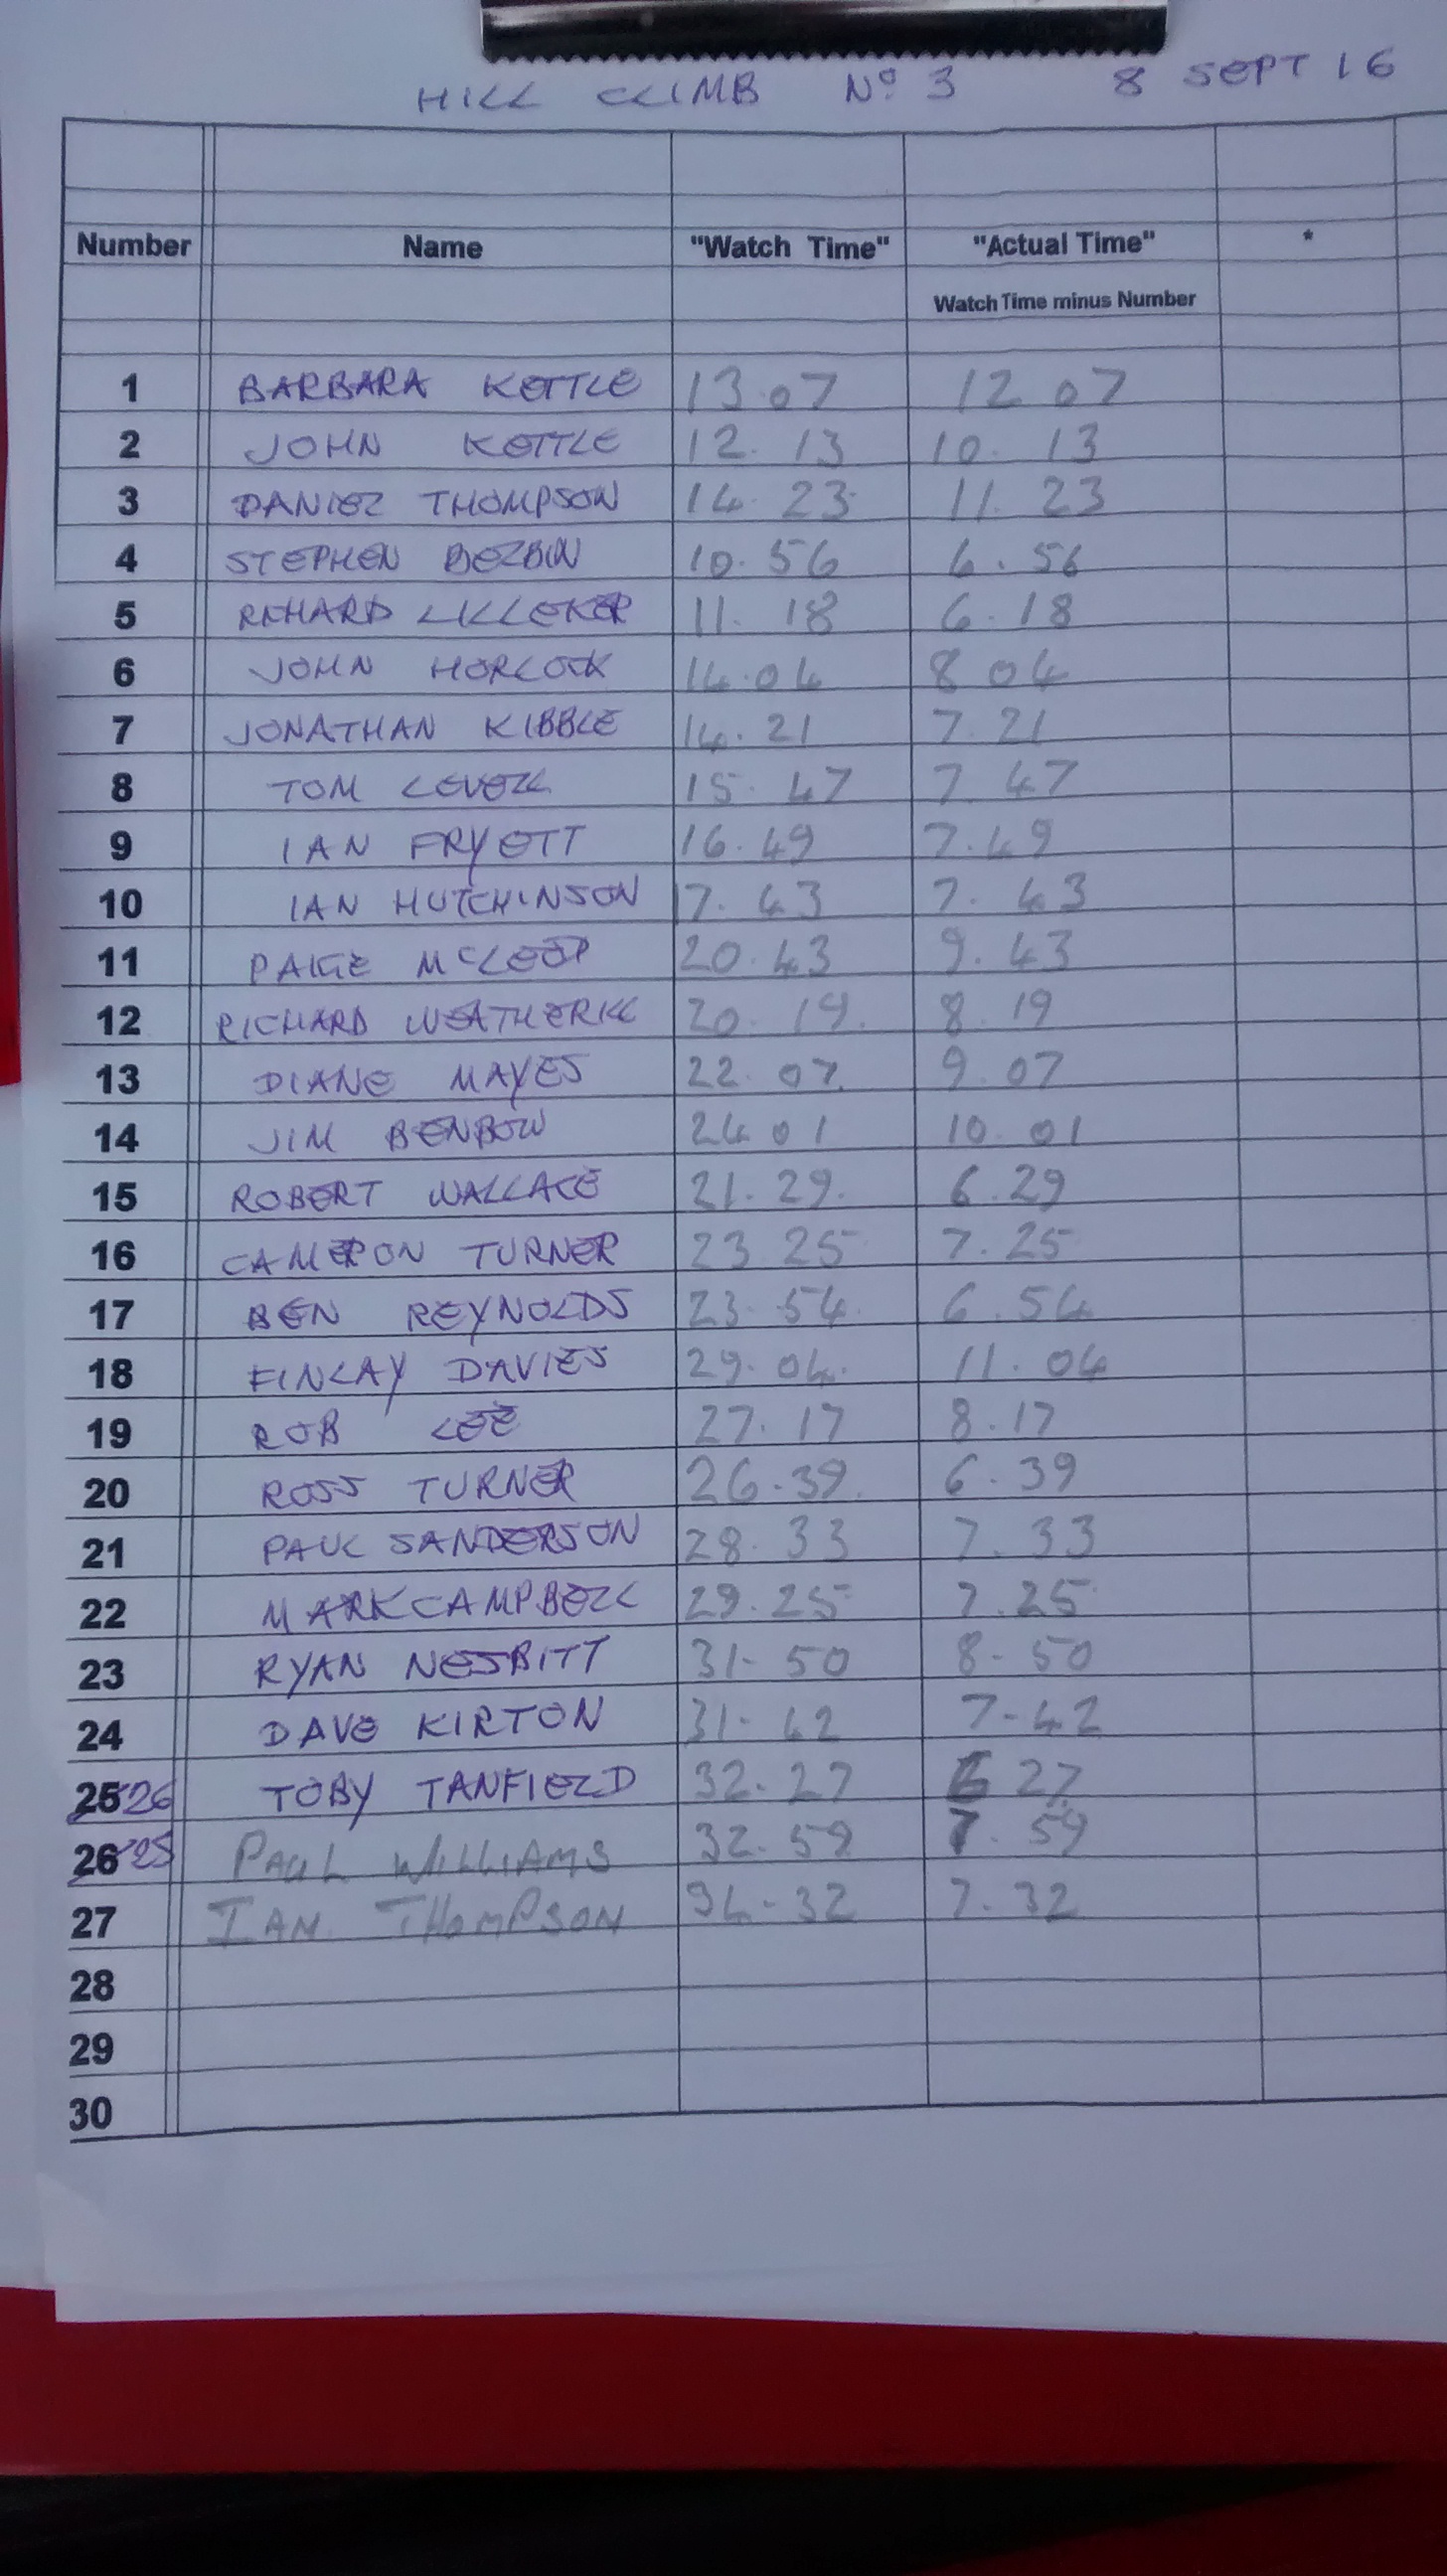 HILL CLIMB Nº 3 8 SEPT 16
Number Name "Watch Time" "Actual Time" *
Watch Time minus Number
1 BARBARA KETTLE 13.07 12 07
2 JOHN KETTLE 12. 13 10. 13
3 DANIEL THOMPSON 14. 23 11. 23
4 STEPHEN BELBIN 10. 56 6. 56
5 RICHARD LILLEKER 11. 18 6. 18
6 JOHN HORLOCK 14.04 8 04
7 JONATHAN KIBBLE 14. 21 7. 21
8 TOM LEVELL 15. 47 7. 47
9 IAN FRYETT 16.49 7.49
10 IAN HUTCHINSON 17. 43 7. 43
11 PAIGE McLEOD 20.43 9. 43
12 RICHARD WEATHERILL 20. 19. 8. 19
13 DIANE MAYES 22. 07. 9. 07
14 JIM BENBOW 24 01 10. 01
15 ROBERT WALLACE 21. 29. 6.29
16 CAMERON TURNER 23 25 7. 25
17 BEN REYNOLDS 23. 54. 6. 54
18 FINLAY DAVIES 29. 04. 11. 04
19 ROB LEE 27. 17 8.17
20 ROSS TURNER 26.39. 6. 39
21 PAUL SANDERSON 28. 33 7. 33
22 MARK CAMPBELL 29.25 7.25
23 RYAN NESBITT 31- 50 8- 50
24 DAVE KIRTON 31- 42 7-42
25 26 TOBY TANFIELD 32- 27 6 27
26 25 PAUL WILLIAMS 32. 59 7. 59
27 IAN THOMPSON 34-32 7. 32
28
29
30